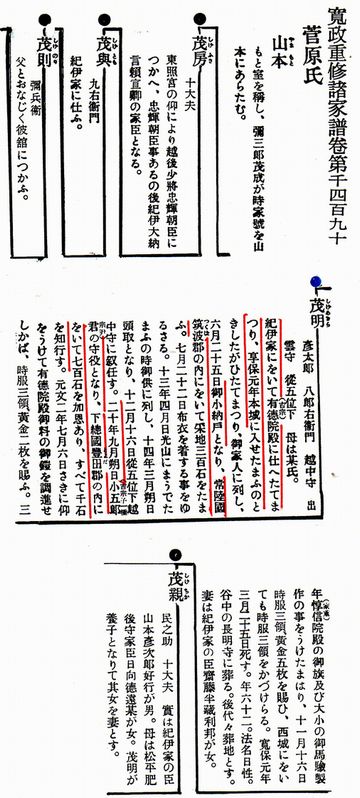 寬政重修諸家譜卷第千四百九十
菅原氏
山本
もと室を稱し、彌三郎茂成が時家號を山
本にあらたむ。
茂房
十大夫
東照宮の仰により越後少將忠輝朝臣に
つかへ、忠輝朝臣事あるの後紀伊大納
言賴宣卿の家臣となる。
茂與
九右衞門
紀伊家に仕ふ。
茂則
彌兵衞
父とおなじく彼館につかふ。
茂明
彥太郎 八郎右衞門 越中守 出
雲守 從五位下 母は某氏。
紀伊家にをいて有德院殿に仕へたてま
つり、享保元年本城に入せたまふのと
きしたがひたてまつり、御家人に列し、
六月二十五日御小納戶となり、常陸國
筑波郡の內にをいて采地三百石をたま
ふ。七月二十二日布衣を着する事をゆ
るさる。十三年四月日光山にまうでた
まふの時御供に列し、十四年三月朔日
頭取となり、十二月十六日從五位下越
中守に叙任す。二十年九月朔日小五郎
君の守役となり、下總國豐田郡の內に
をいて七百石を加恩あり、すべて千石
を知行す。元文二年七月六日さきに仰
をうけて有德院殿御料の御鎧を調進せ
しかば、時服三領黃金二枚を賜ふ。三
年惇信院殿の御旗及び大小の御馬驗製
作の事をうけたまはり、十一月十六日
時服三領黃金五枚を賜ひ、西城にをい
ても時服三領をかづけらる。寬保元年
三月二十五日死す。年六十二。法名日性。
谷中の長明寺に葬る。後代々葬地とす。
妻は紀伊家の臣齋藤半藏利邦が女。
茂親
民之助 十大夫 實は紀伊家の臣
山本彥次郎好行が男。母は松平肥
後守家臣日向德遠某が女。茂明が
養子となりて其女を妻とす。